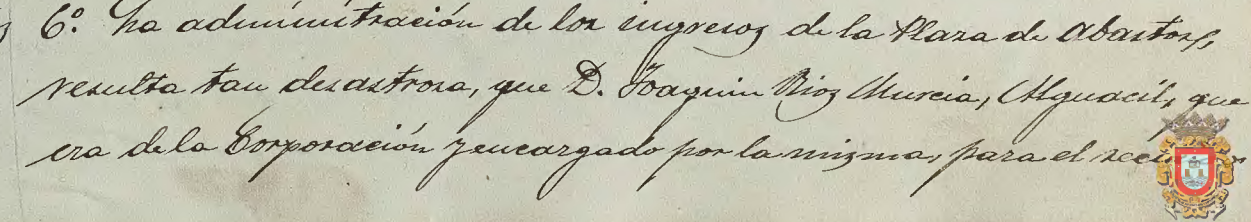 6º. La administración de los ingresos de la Plaza de Abastos,
resulta tan desastrosa, que D. Joaquin Rios Murcia, Alguacil, que
era de la Corporación y encargado por la misma, para el